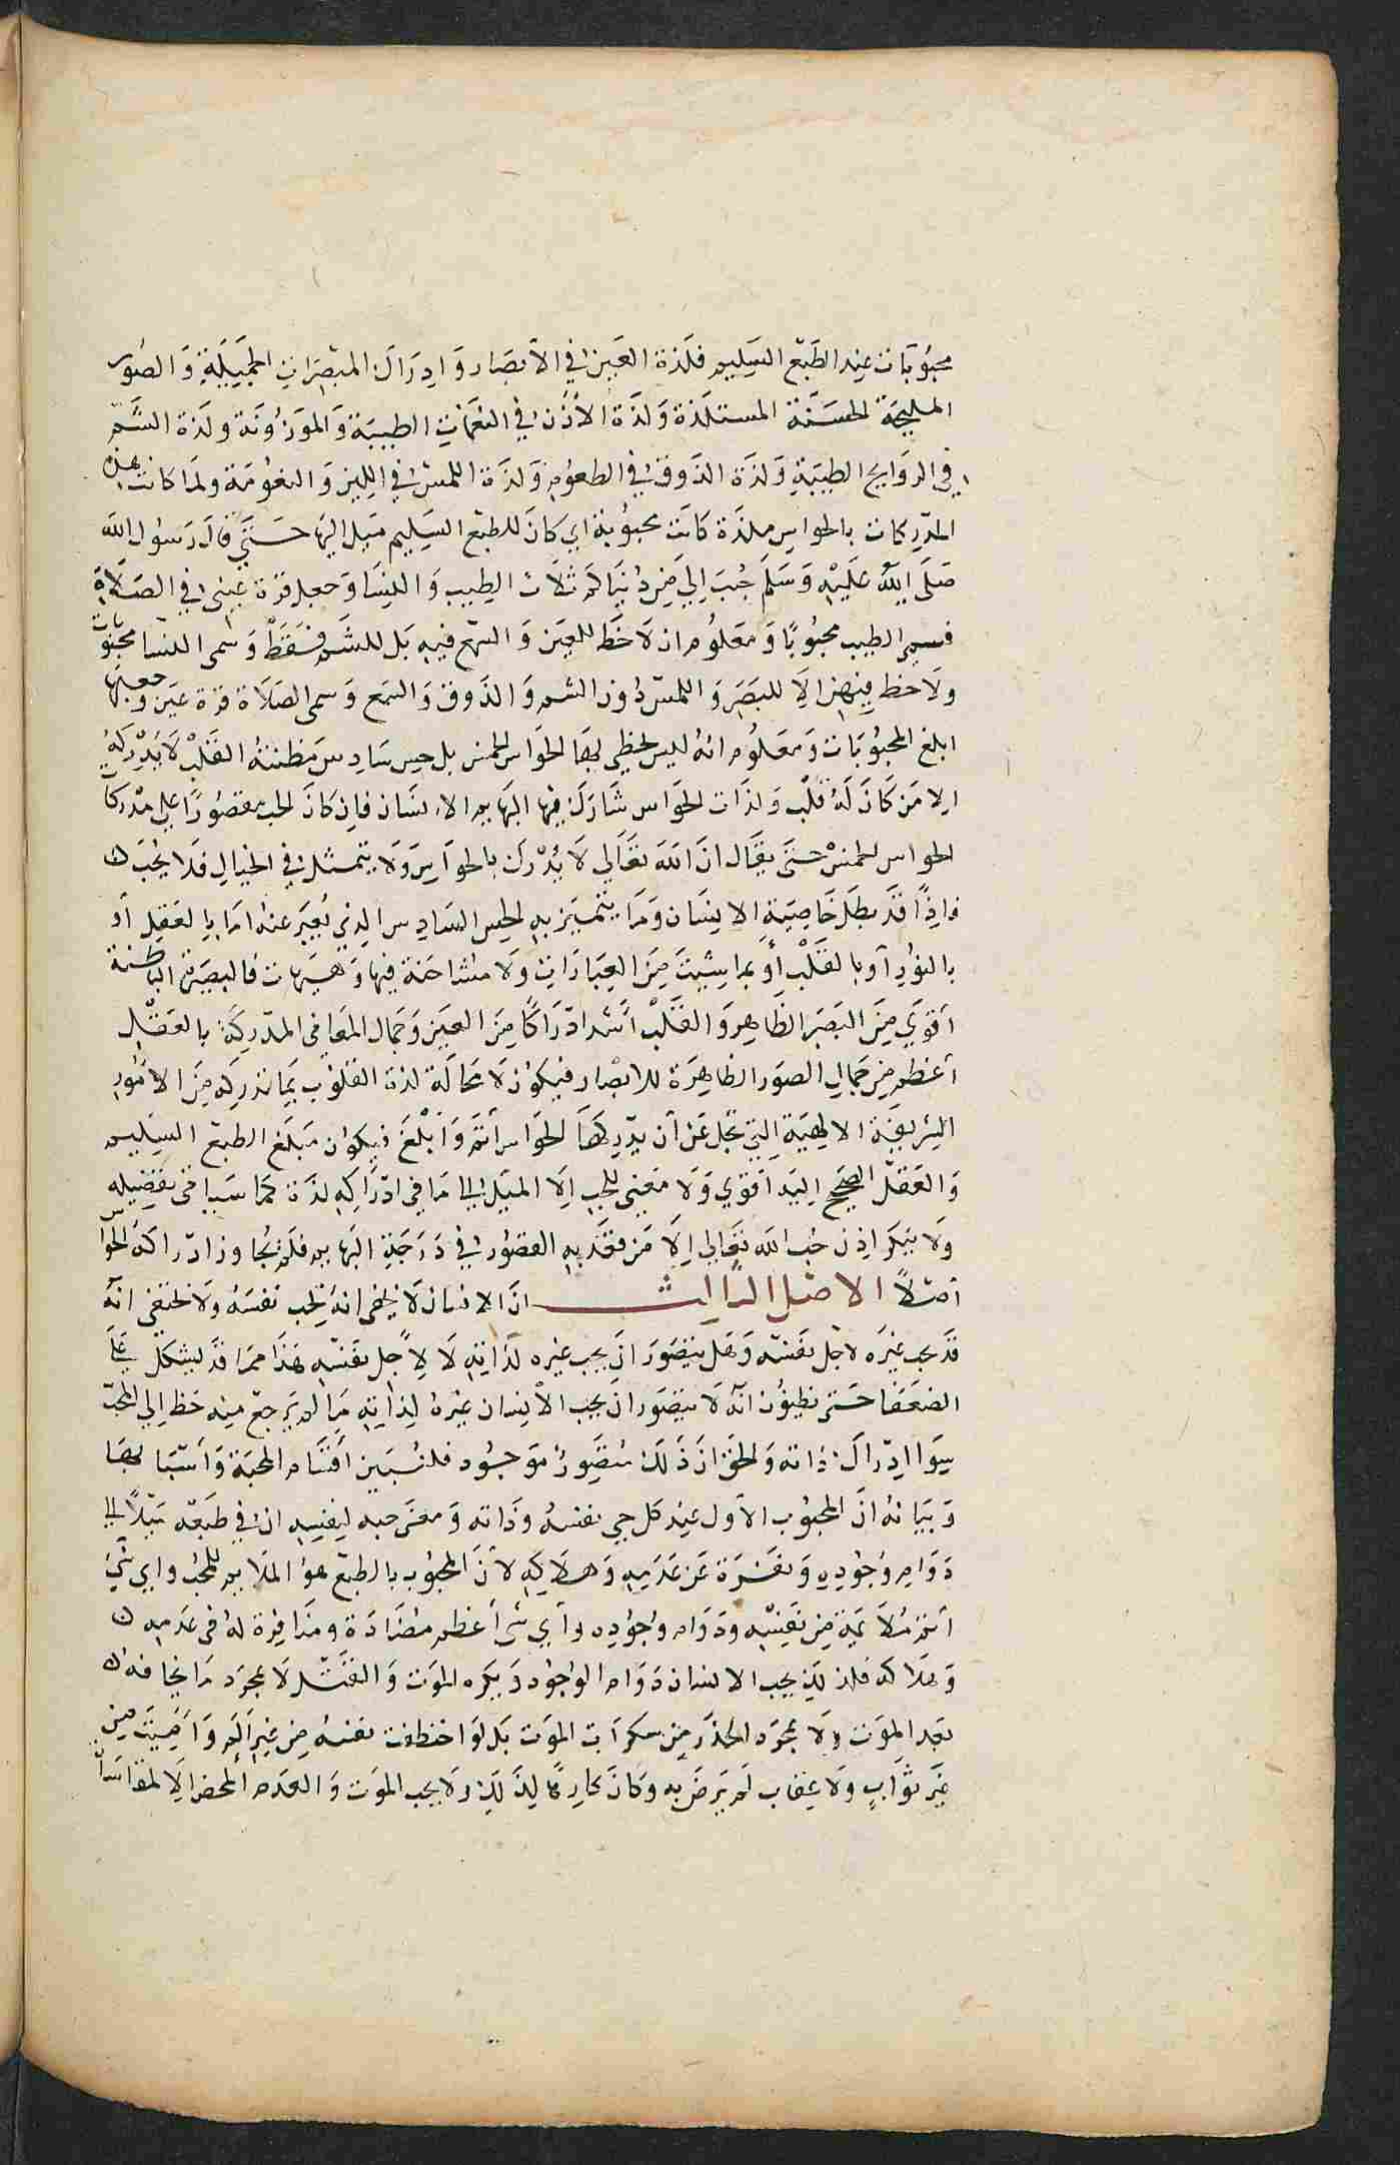 محبوبات عند الطبع السليم فلذة العين في الابصار وادراك المبصرات الجميلة والصور
المليحة الحسنة المستلذة ولذة الاذن في النغمات الطيبة والموزونة ولذة الشم
في الروايح الطيبة ولذة الذوق في الطعوم ولذة اللمس في اللين والنعومة ولما كانت هذه
المدركات بالحواس ملذة كانت محبوبة اي كان للطبع السليم ميل اليها حتي قال رسول الله
صلى الله عليه وسلم حبب الي من دنياكم ثلاث الطيب والنسا وجعل قرة عيني في الصلاة
فسمي الطيب محبوبا ومعلوم ان لا حظ للعين والسمع فيه بل للشم فقط وسمى النسا محبوبات
ولا حظ فيهن الا للبصر واللمس دون الشم والذوق والسمع وسمى الصلاة قرة عين وجعلها
ابلغ المحبوبات ومعلوم انه ليس يحظى بها الحواس الخمس بل حس سادس مظنته القلب لا يدركه
الا من كان له قلب ولذات الحواس شارك فيها البهايم الانسان فان كان الحب مقصورا على مدركات
الحواس الخمس حتى يقال ان الله تعالى لا يدرك بالحواس ولا يتمثل في الخيال فلا يحب
فاذا قد بطل خاصية الانسان وما يتميز به الحس السادس الذي يعبر عنه اما بالعقل او
بالنور او بالقلب او بما شيت من العبارات ولا مشاحنة فيها وهيهات فالبصيرة الباطنة
اقوى من البصر الظاهر والقلب اشد ادراكا من العين وجمال المعاني المدركة بالعقل
اعظم من جمال الصور الظاهرة للابصار فيكون لا محالة لذة القلوب بما تدركه من الامور
الشريفة الالهية التي تجل عن ان يدركها الحواس اتم وابلغ فيكون مبلغ الطبع السليم
والعقل الصحيح اليه اقوي ولا معنى للحب الا الميل الى ما في ادراكه لذة كما سياتي تفضيله
ولا ينكر اذن حب الله تعالى الا من قعد به القصور في درجة البهايم فلم يجاوز ادراكه الحواس
اصلا الاصل الثالث ان الانسان لا يخفى انه يحب نفسه ولا يختفي انه
قد يحب غيره لاجل نفسه وهل يتصور ان يحب غيره لذاته لا لاجل نفسه هذا مما قد يشكل على
الضعفا حتى يظنون انه لا يتصور ان يحب الانسان غيره لذاته ما لم يرجع منه حظ الى المحب
سوا ادراك ذاته والحق ان ذلك متصور موجود فلنبين اقسام المحبة واسبابها
وبيانه ان المحبوب الاول عند كل حي نفسه وذاته ومعنى حبه لنفسه ان في طبعه ميلا الى
دوام وجوده ونفرة عن عدمه وهلاكه لان المحبوب بالطبع هو الملايم للمحب واي شي
اتم ملاءمة من نفسه ودوام وجوده واي شي اعظم مضادة ومنافرة له في عدمه
وهلاكه فلذلك يحب الانسان دوام الوجود ويكره الموت والقتل لا بمجرد ما يخافه
بعد الموت ولا بمجرد الحذر من سكرات الموت بل لو اختطفت نفسه من غير الم واميت من
غير ثواب ولا عقاب لم يرض به وكان كارها لذلك ولا يحب الموت والعدم المحض الا لمقاساة